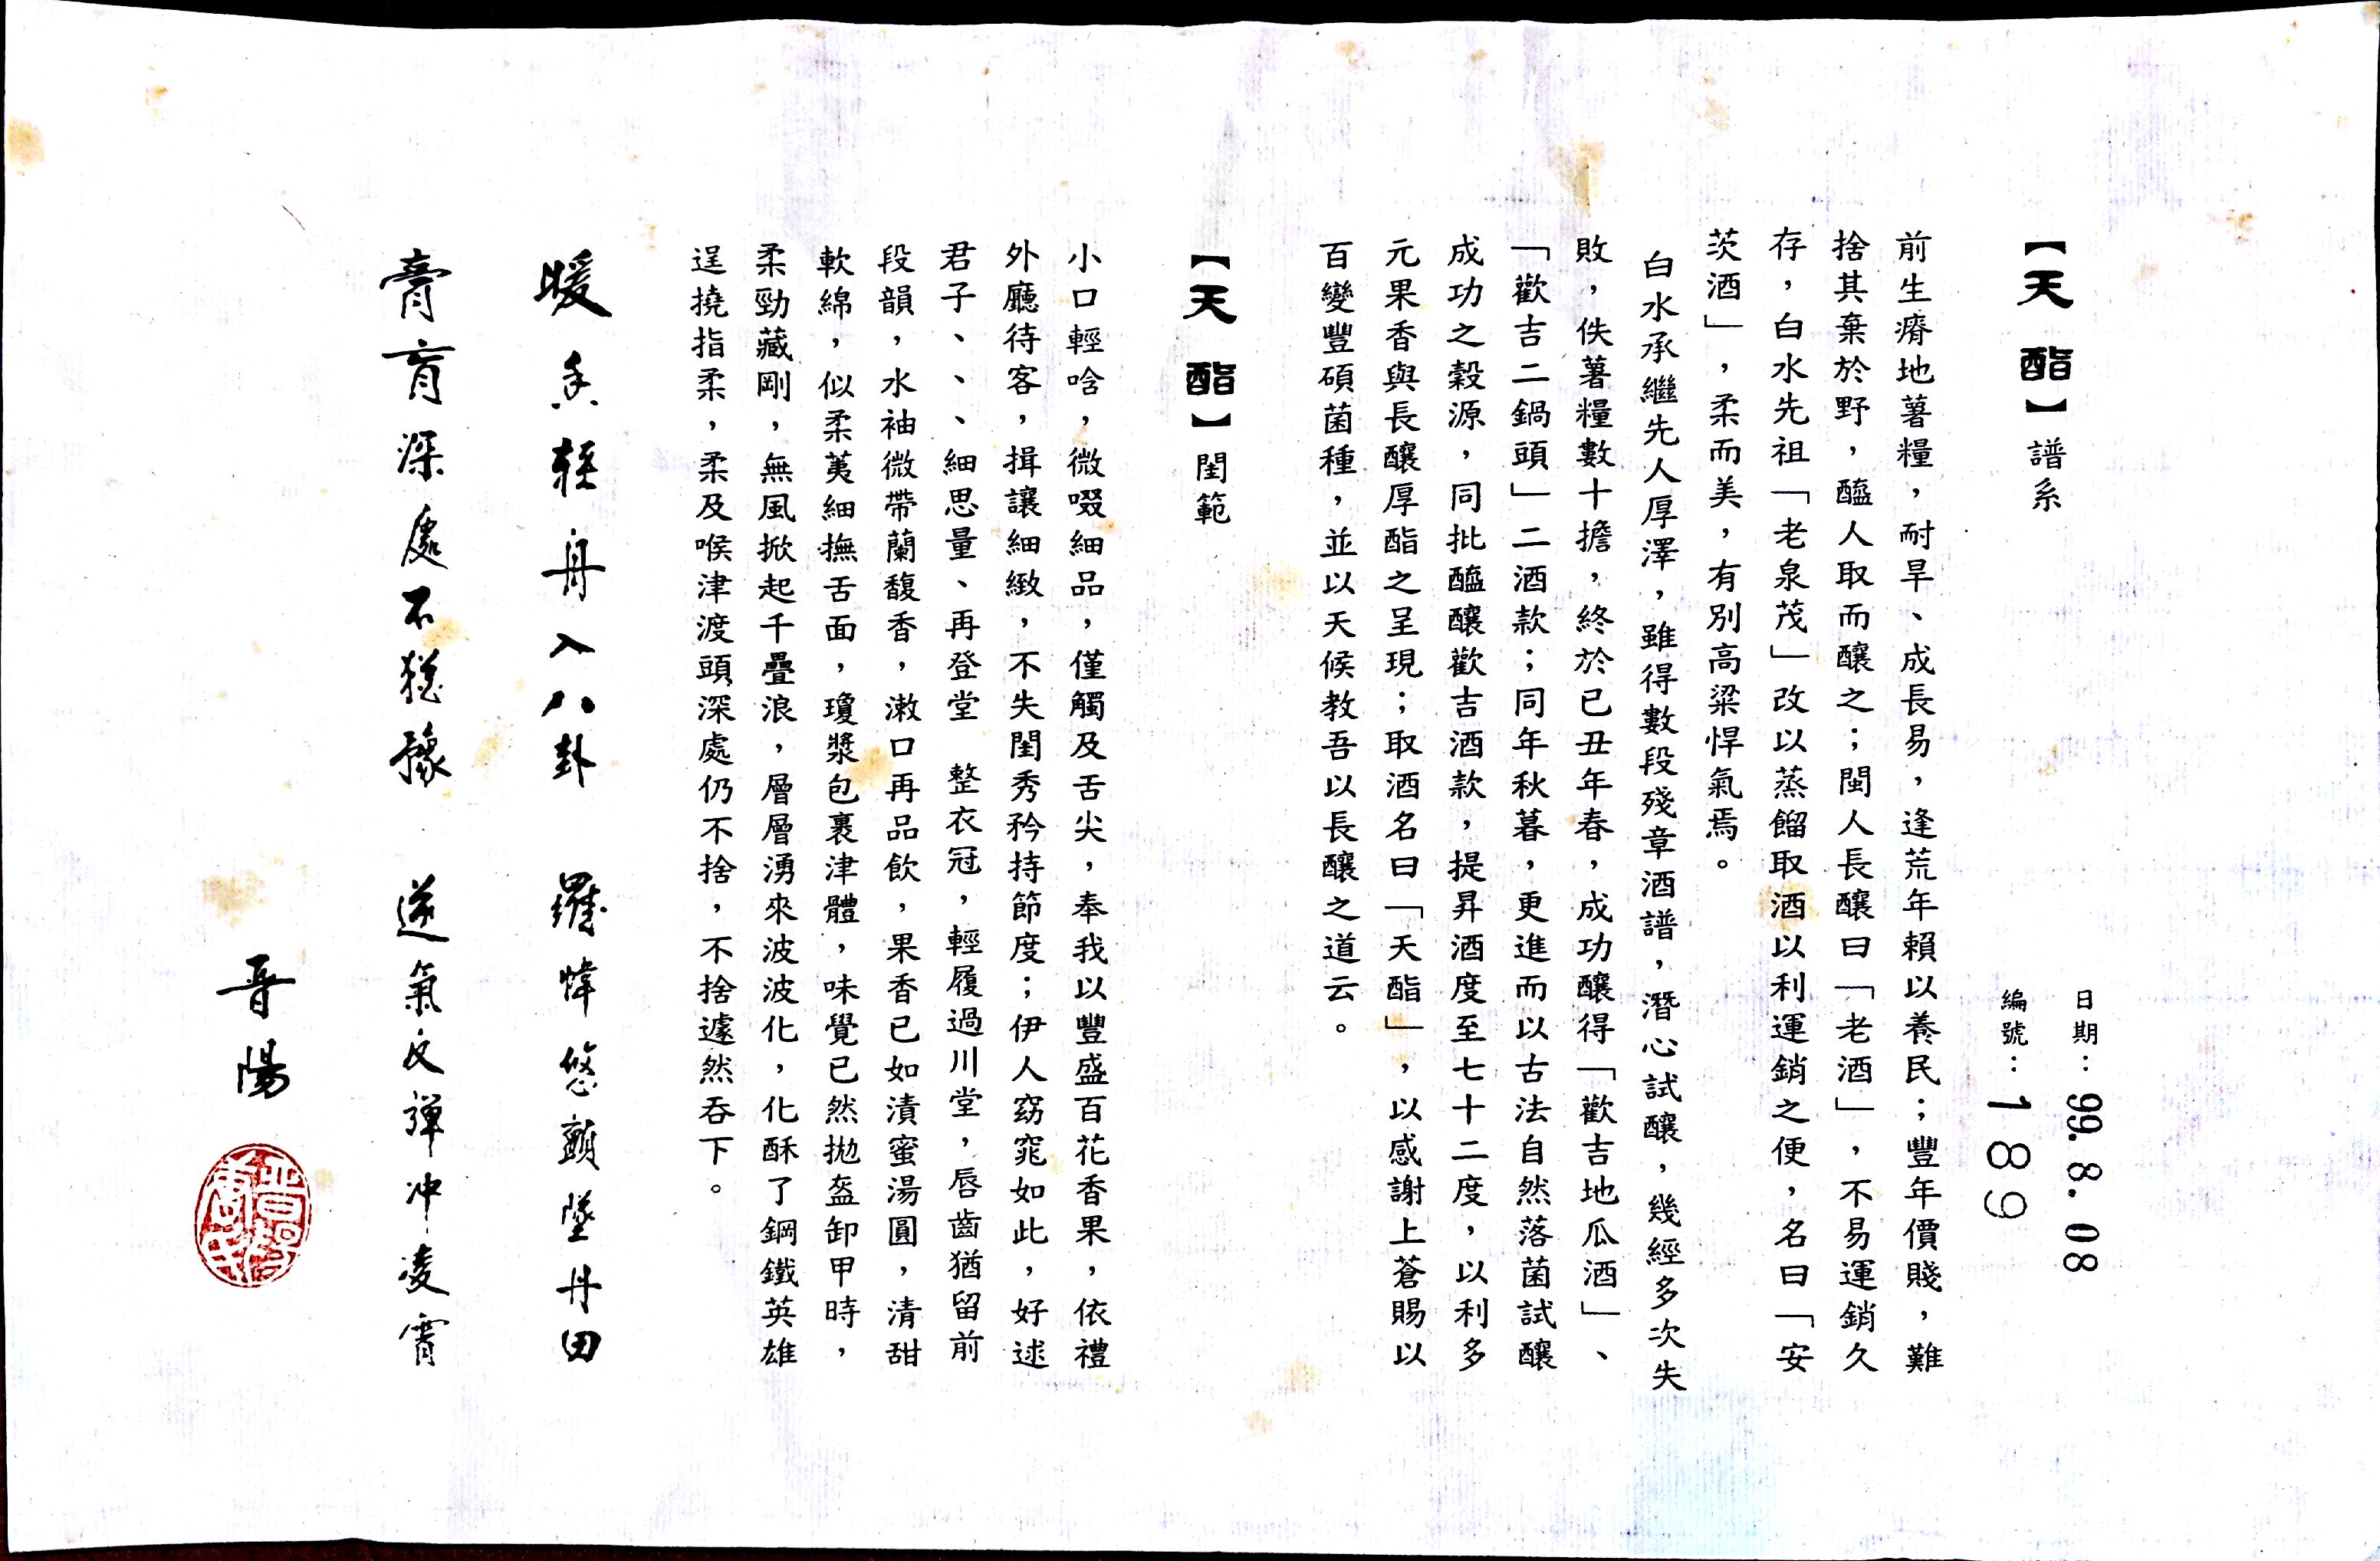 日期：99.8.08
編號：189
【天酯】譜系
前生瘠地薯糧，耐旱、成長易，逢荒年賴以養民；豐年價賤，難
捨其棄於野，醞人取而釀之；閩人長釀曰「老酒」，不易運銷久
存，白水先祖「老泉茂」改以蒸餾取酒以利運銷之便，名曰「安
茨酒」，柔而美，有別高粱悍氣焉。
白水承繼先人厚澤，雖得數段殘章酒譜，潛心試釀，幾經多次失
敗，佚薯糧數十擔，終於已丑年春，成功釀得「歡吉地瓜酒」、
「歡吉二鍋頭」二酒款；同年秋暮，更進而以古法自然落菌試釀
成功之穀源，同批醞釀歡吉酒款，提昇酒度至七十二度，以利多
元果香與長釀厚酯之呈現；取酒名曰「天酯」，以感謝上蒼賜以
百變豐碩菌種，並以天候教吾以長釀之道云。
【天酯】閨範
小口輕啥，微啜細品，僅觸及舌尖，奉我以豐盛百花香果，依禮
外廳待客，揖讓細緻，不失閨秀矜持節度；伊人窈窕如此，好逑
君子、、、、細思量、再登堂 整衣冠，輕履過川堂，唇齒猶留前
段韻，水袖微帶蘭馥香，漱口再品飲，果香已如漬蜜湯圓，清甜
軟綿，似柔荑細撫舌面，瓊漿包裹津體，味覺已然拋盔卸甲時，
柔勁藏剛，無風掀起千疊浪，層層湧來波波化，化酥了鋼鐵英雄
逞撓指柔，柔及喉津渡頭深處仍不捨，不捨遽然吞下。
暖香輕舟入八卦 羅幃悠顫墜丹田
膏肓深處不猶豫 逆氣反彈沖凌霄
晉陽